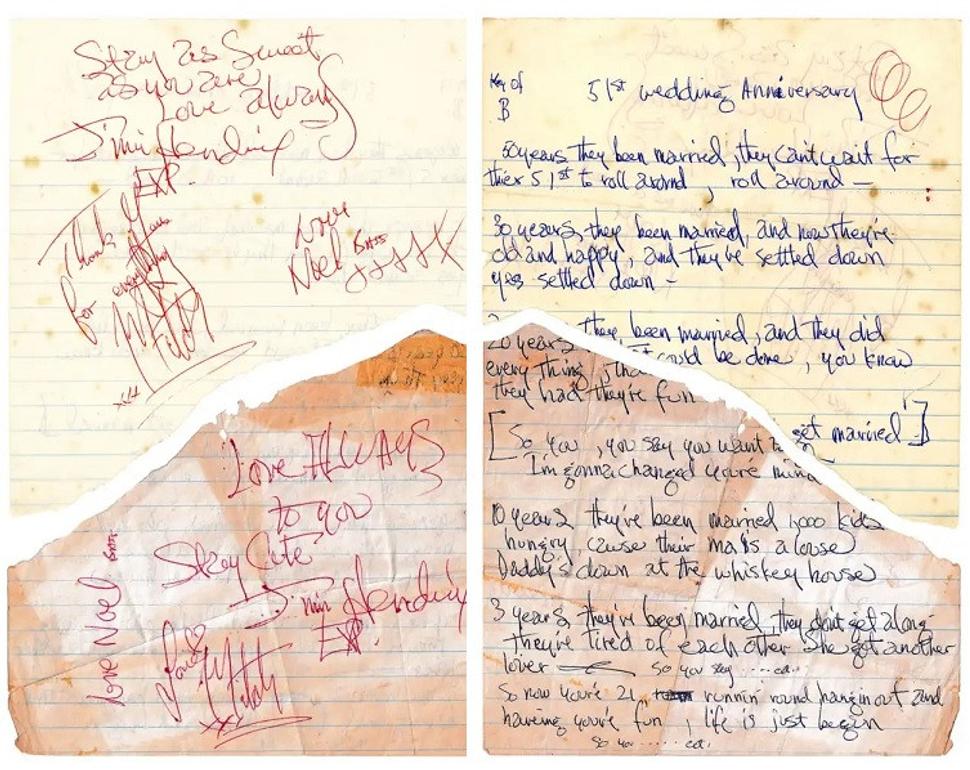 Stay as Sweet
as you are
Love always
Jimi Hendrix
EXP.
Thank you
for everything
Mitch
xxx
Love
Noel Bass
XXXXX
Love ALWAYS
to you
Stay Cute
Jimi Hendrix
EXP.
Love Noel Bass
Love
Mitch
xx
Key of
B
51st wedding Anniversary
50 years they been married, they can't wait for
thier 51st to roll around, roll around —
30 years, they been married, and now they're
old and happy, and they've settled down
yes settled down -
20 years they been married, and they did
every thing, that could be done, you know
they had they're fun
[So you, you say you want to get married]
I'm gonna changed you're mind
10 years they've been married 1,000 kids
hungry, cause their ma is a louse
Daddy's down at the whiskey house
3 years, they've been married, they don't get along
they're tired of each other She got another
lover — so you say ..... ect.
So now you're 21, runnin round hangin out and
haveing you're fun, life is just begin
so you ..... ect.